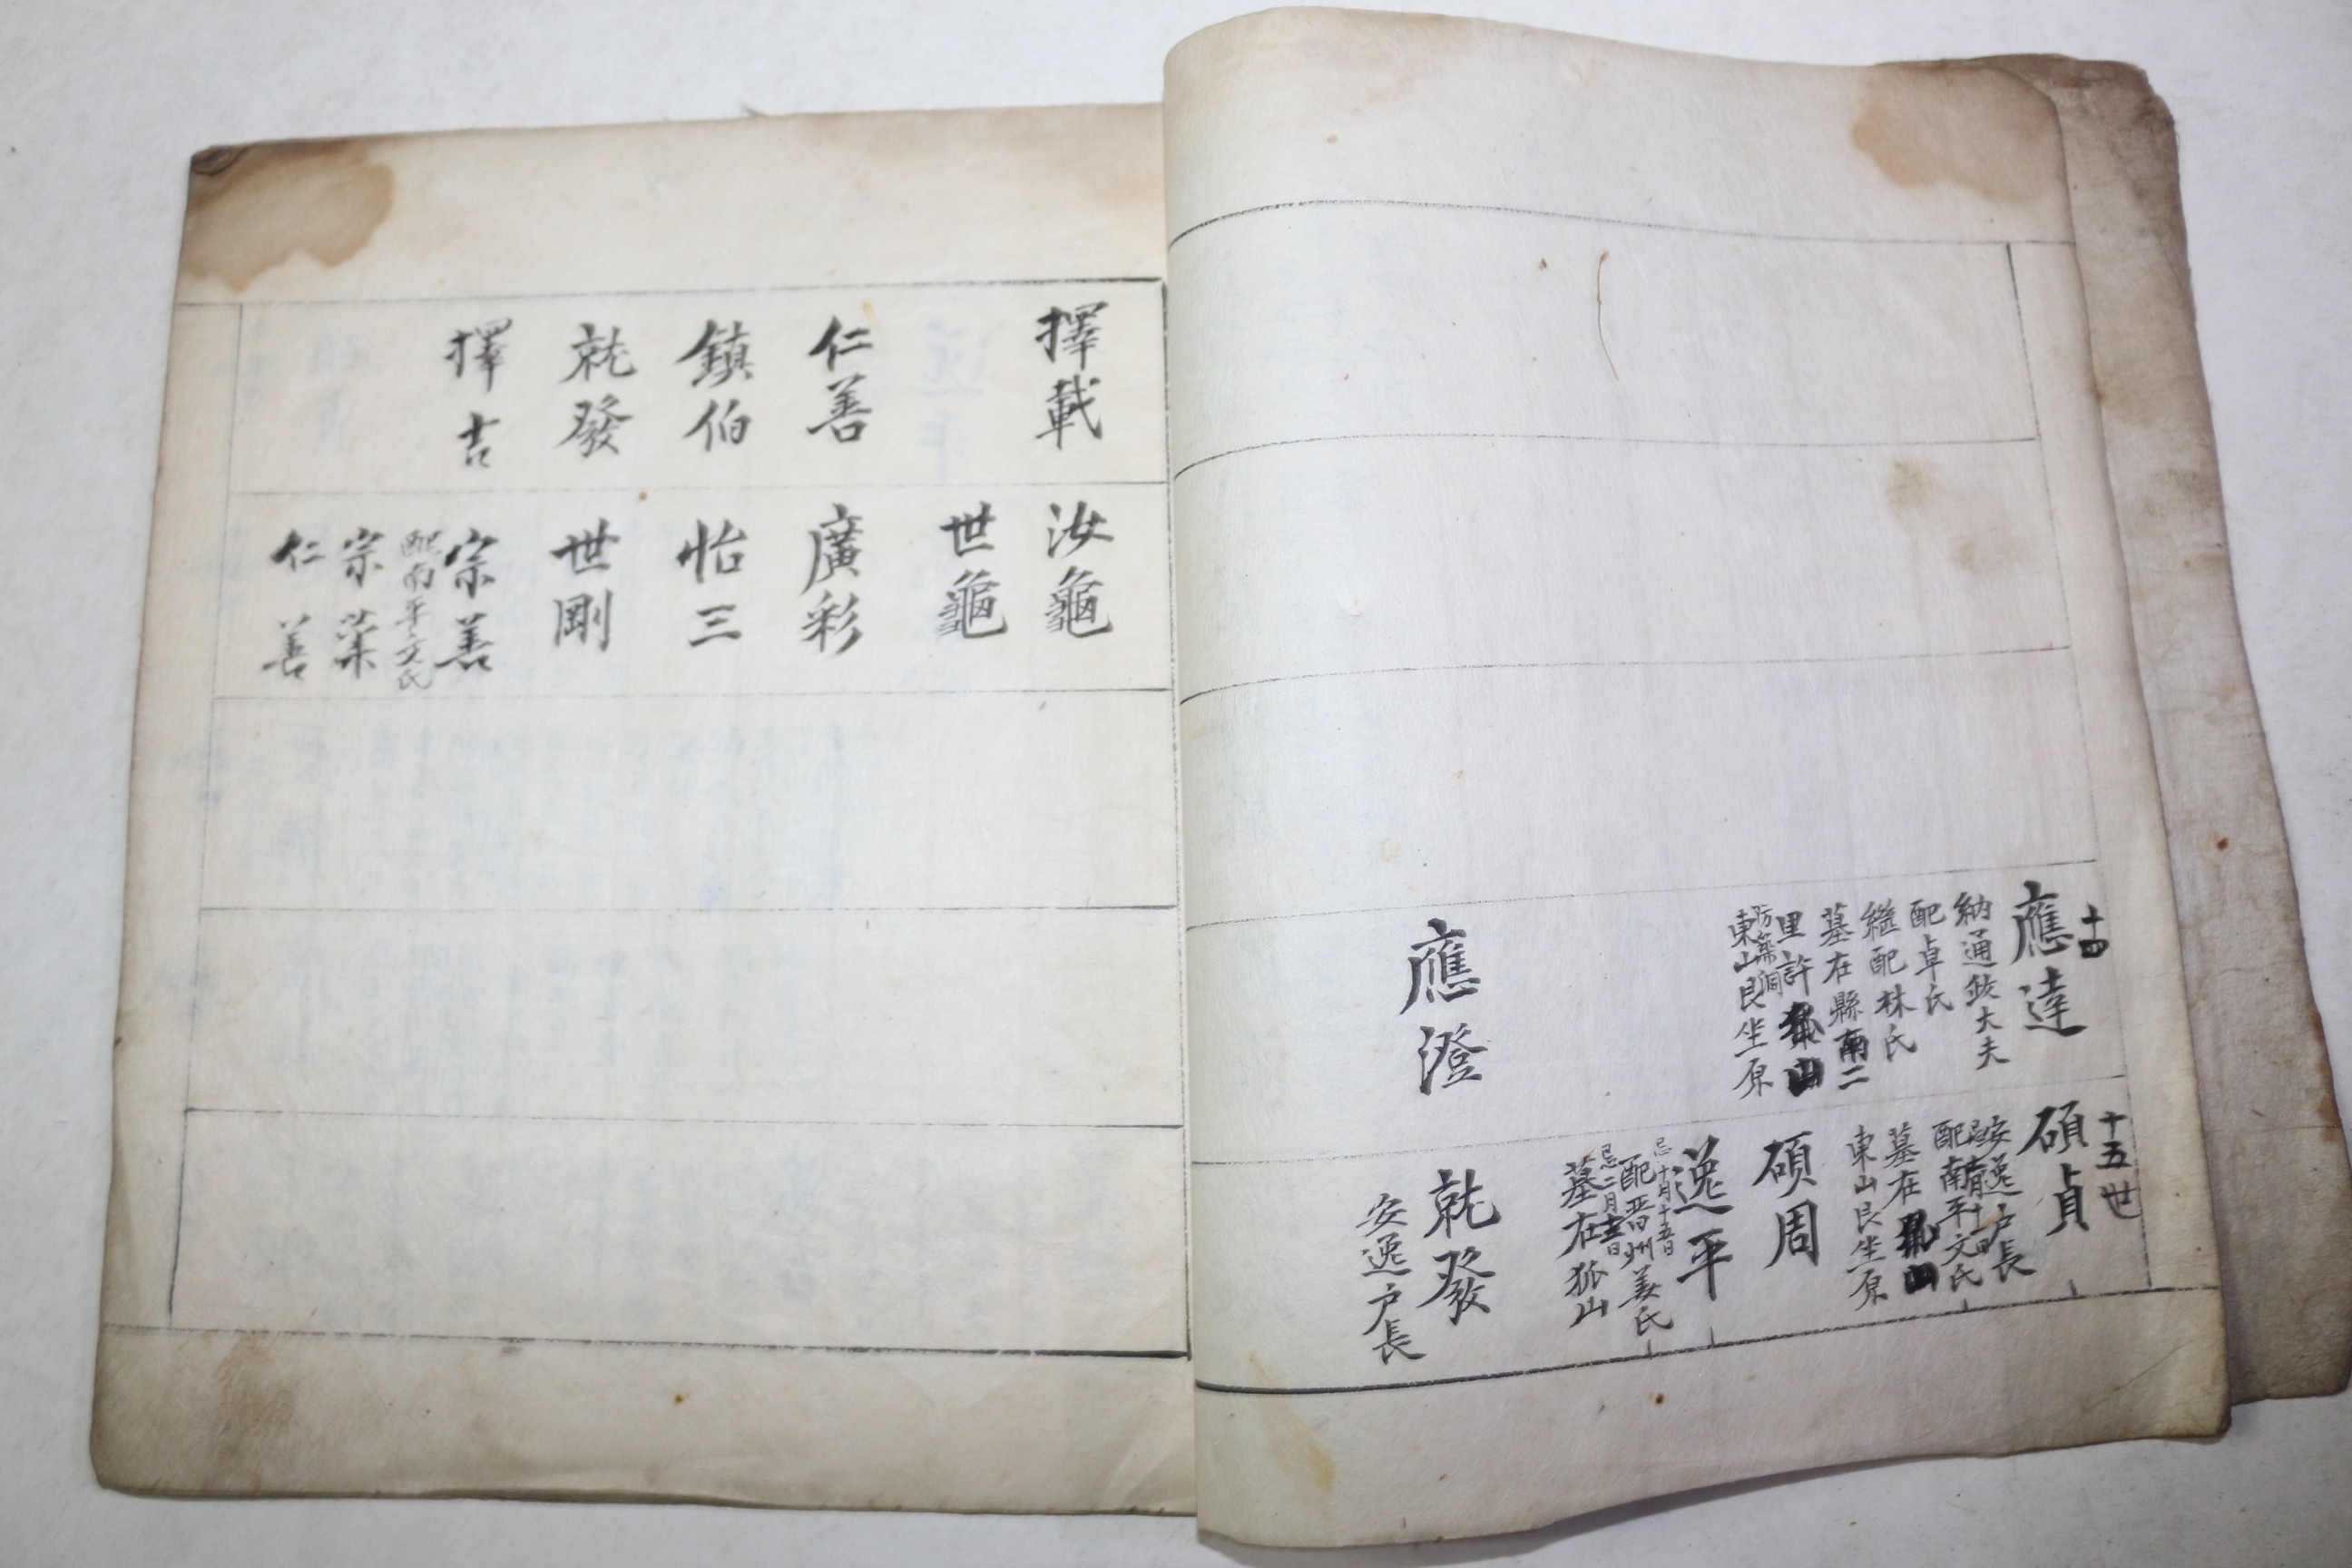 十四
應達
納通政大夫
配卓氏
繼配林氏
墓在縣南二
里許
東山艮坐原
應澄
十五世
碩貞
安逸户長
配南平文氏
墓在
東山艮坐原
碩周
逸平
忌十月十五日
配晋州姜氏
忌二月
墓在狐山
就發
安逸户長
擇載
仁善
鎮伯
就發
擇吉
汝龜
世龜
廣彩
怡三
世剛
宗善
配南平文氏
宗業
仁善